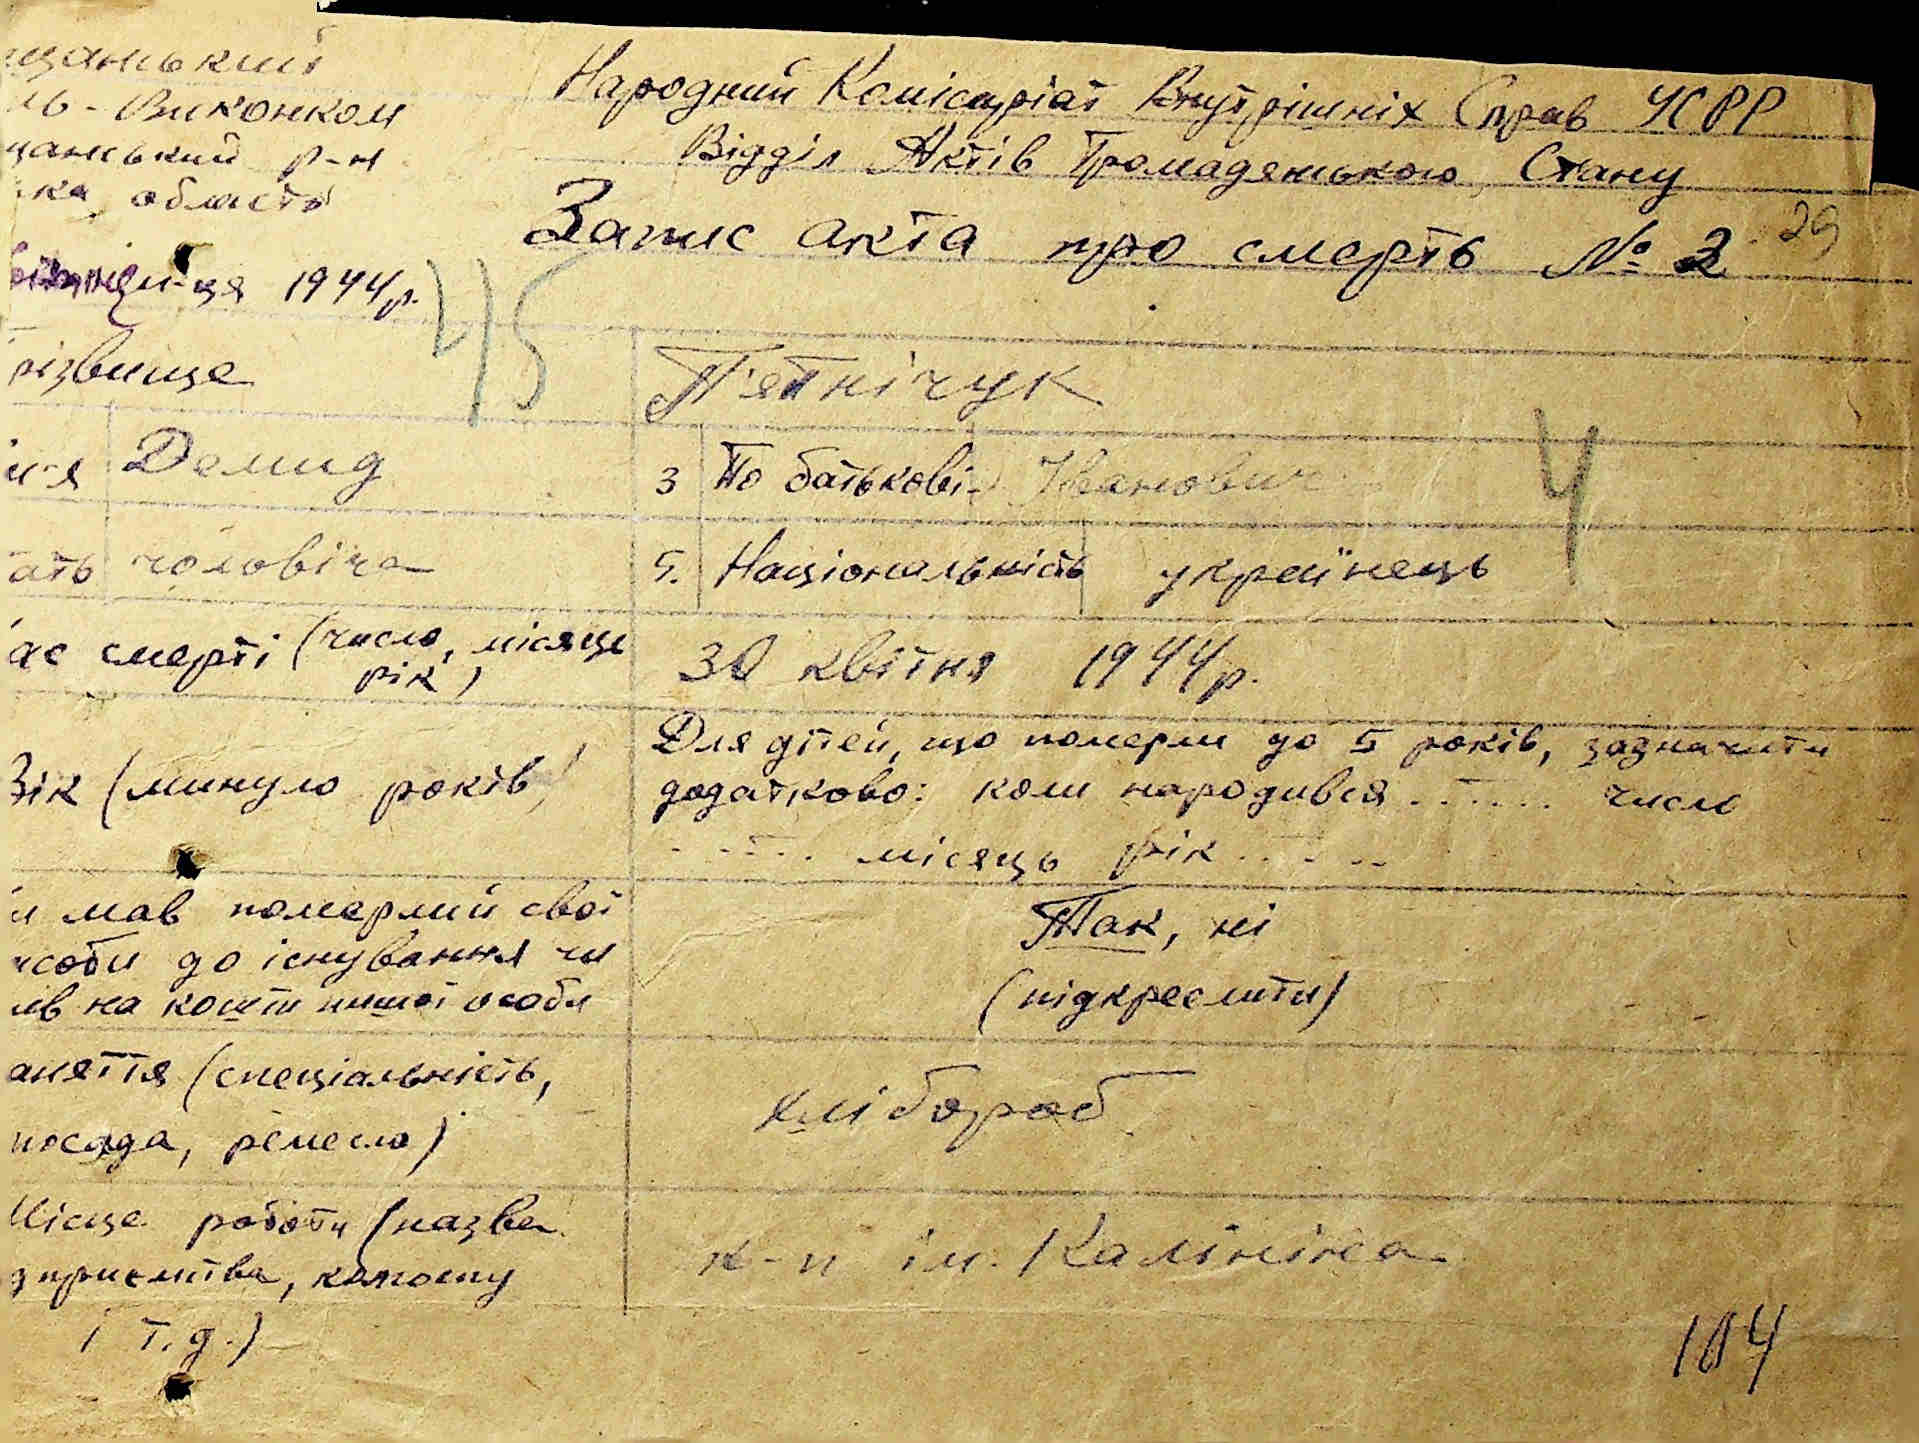 щанський
ль-Виконком
щанський р-н
ка область
1944р.
45
Народний Комісаріат Внутрішніх Справ УСРР
Відділ Актів Громадянського Стану
Запис акта про смерть № 2
29
різвище
П'ятнічук
м'я Демид
3 По батькові Іванович
4
ать чоловіча
5. Національність українець
ас смерті (число, місяць
рік)
30 квітня 1944р.
Вік (минуло років)
Для дітей, що померли до 5 років, зазначити
додатково: коли народився ....... число
....... місяць рік ......
и мав померлий свої
асоби до існування чи
ив на кошти иншої особи
Так, ні
(підкреслити)
аняття (спеціальність,
посада, ремесло)
хлібороб
Місце роботи (назва
дприємства, колгоспу
і т.д.)
к-п ім. Калініна
104